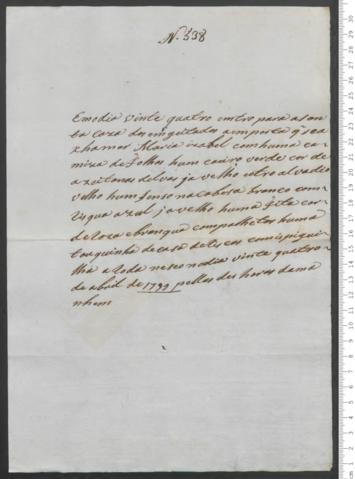 N. 538
Em o dia vinte quatro entro para a San
ta Caza dos ingeitados a imposta q' se a
xhamos Maria izabel com huma ca
miza de folhos hum coeiro verde cor de
azeitonas de lvas ja velho outro alvadio
velho hum lenso na cabesa branco com
risqua azul ja velho huma fita cor
de roza e branqua com palhetas huma
touquinha de casa de
lha a Roda neseo no dia vinte quatro
de abril de 1799 pellas des horas da ma
nham